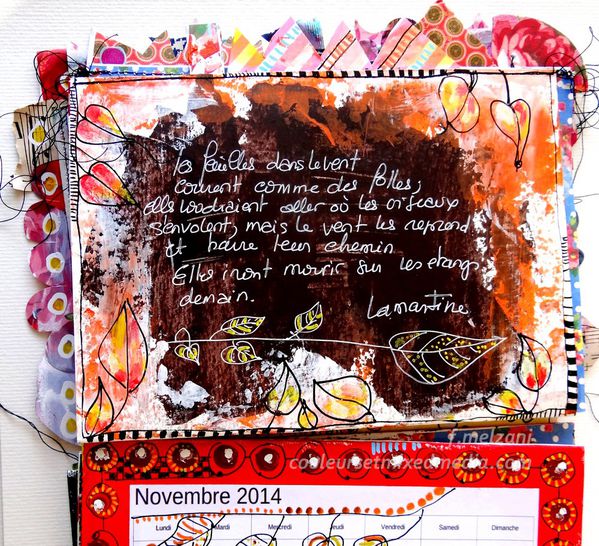 les feuilles dans le vent
courent comme des folles,
elles voudraient aller où les oiseaux
s'envolent, mais le vent les reprend
Et barre leur chemin
Elles iront mourir sur les étangs
demain.
Lamartine
j melzani
couleursetmixedmedia.com
Novembre 2014
Lundi Mardi Mercredi Jeudi Vendredi Samedi Dimanche